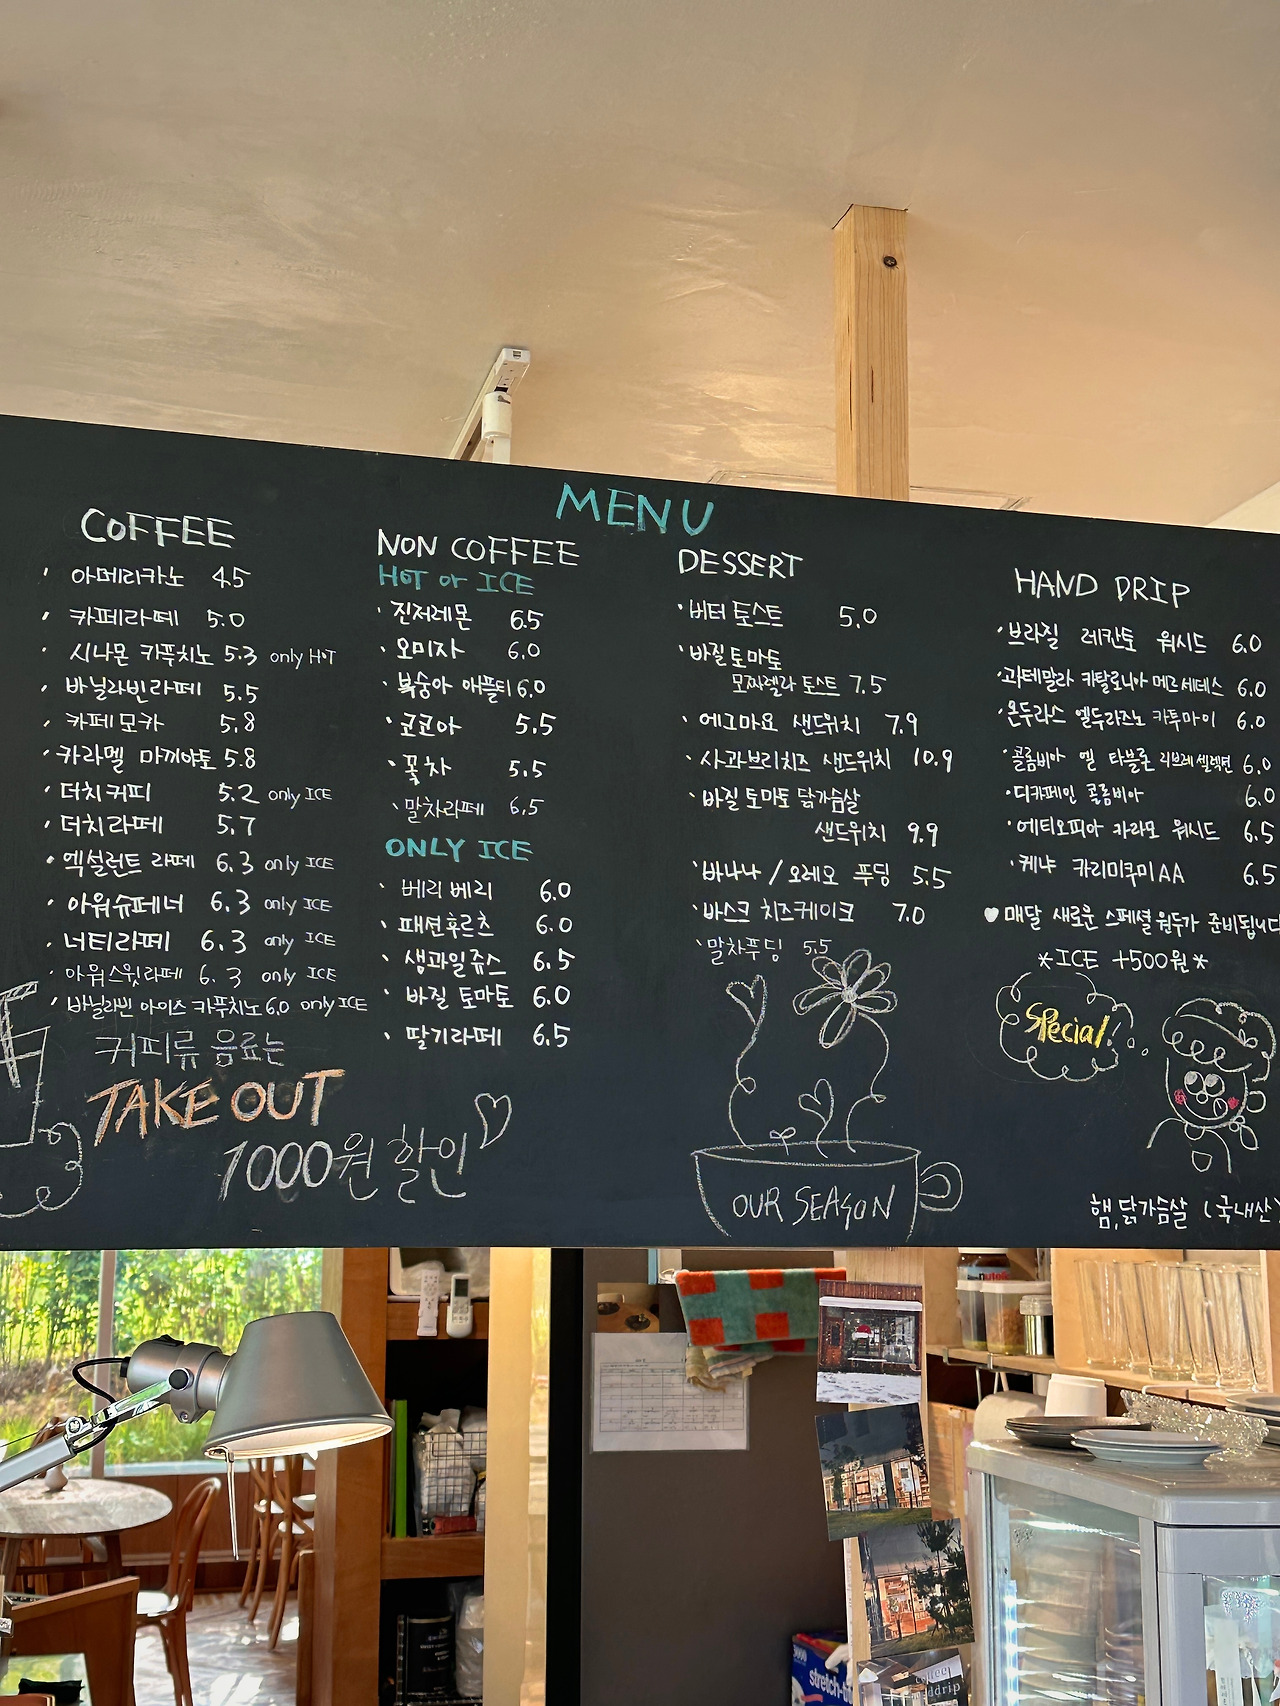 MENU
COFFEE
· 아메리카노 4.5
· 카페라떼 5.0
· 시나몬 카푸치노 5.3 only HOT
· 바닐라빈라떼 5.5
· 카페모카 5.8
· 카라멜 마끼야또 5.8
· 더치커피 5.2 only ICE
· 더치라떼 5.7
· 엑설런트 라떼 6.3 only ICE
· 아워슈페너 6.3 only ICE
· 너티라떼 6.3 only ICE
· 아워스윗라떼 6.3 only ICE
· 바닐라빈 아이스 카푸치노 6.0 only ICE
커피류 음료는
TAKE OUT
1000원 할인
NON COFFEE
HOT or ICE
· 진저레몬 6.5
· 오미자 6.0
· 복숭아 애플티 6.0
· 코코아 5.5
· 꽃차 5.5
· 말차라떼 6.5
ONLY ICE
· 베리베리 6.0
· 패션후르츠 6.0
· 생과일쥬스 6.5
· 바질 토마토 6.0
· 딸기라떼 6.5
DESSERT
· 버터 토스트 5.0
· 바질토마토
모짜렐라 토스트 7.5
· 에그마요 샌드위치 7.9
· 사과브리치즈 샌드위치 10.9
· 바질 토마토 닭가슴살
샌드위치 9.9
· 바나나 / 오레오 푸딩 5.5
· 바스크 치즈케이크 7.0
· 말차푸딩 5.5
OUR SEASON
HAND DRIP
· 브라질 레칸토 워시드 6.0
· 과테말라 카탈로니아 메르세데스 6.0
· 온두라스 엘두라즈노 카투아이 6.0
· 콜롬비아 엘 타블론 리브레 셀렉션 6.0
· 디카페인 콜롬비아 6.0
· 에티오피아 카라모 워시드 6.5
· 케냐 카리미쿠이AA 6.5
♥ 매달 새로운 스페셜 원두가 준비됩니다
*ICE +500원*
Special!
햄,닭가슴살 (국내산)
nutella
stretch-t
coffee
handdrip